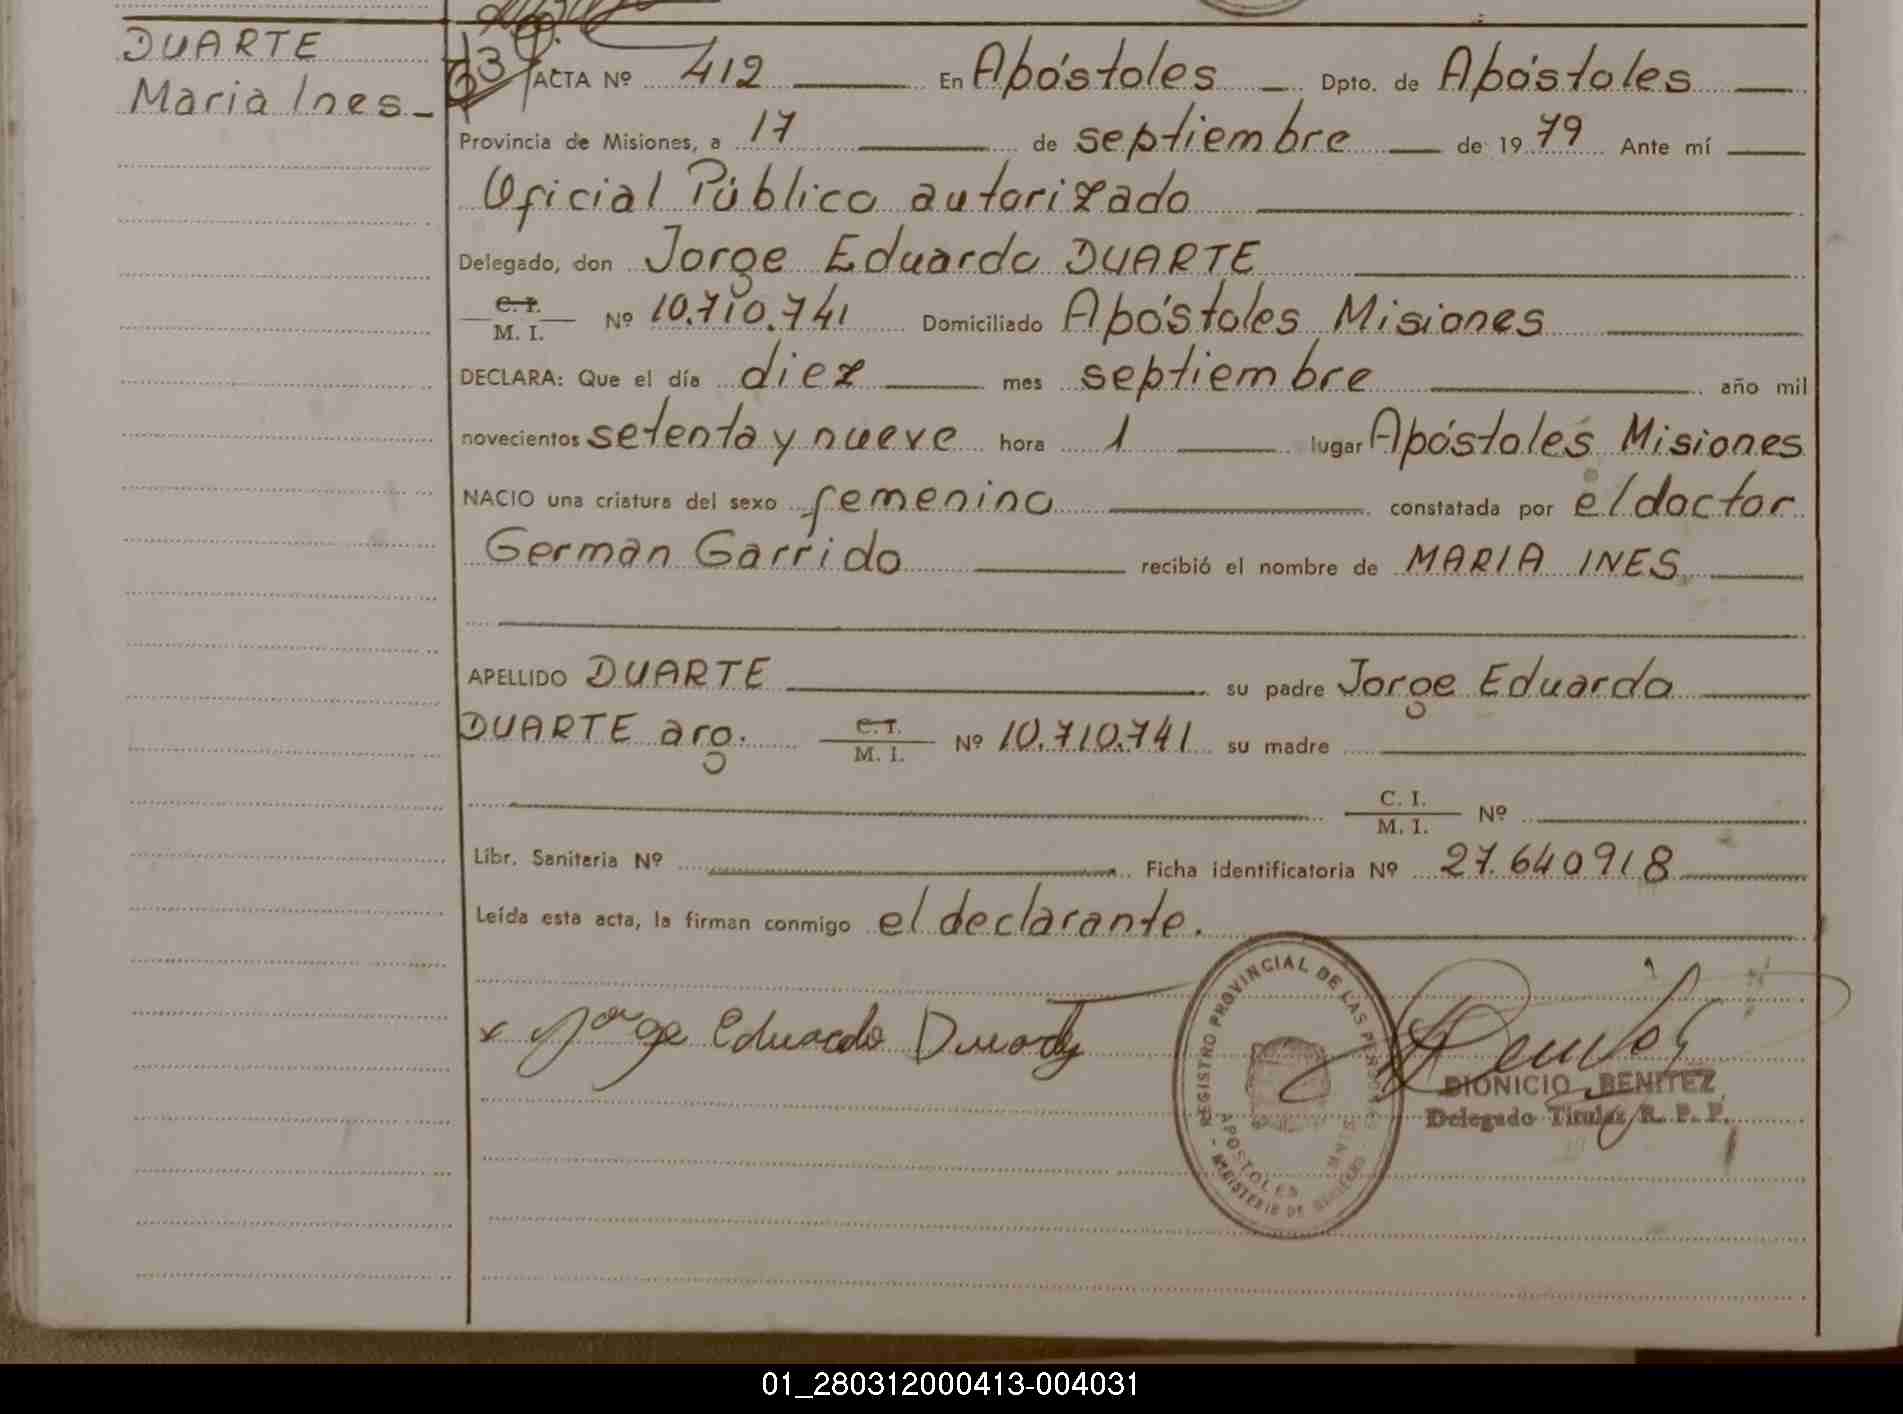 DUARTE
Maria Ines
ACTA Nº 412 En Apóstoles Dpto. de Apóstoles
Provincia de Misiones, a 17 de septiembre de 1979 Ante mí
Oficial Público autorizado
Delegado, don Jorge Eduardo DUARTE
C. I.
M. I. Nº 10.710.741 Domiciliado Apóstoles Misiones
DECLARA: Que el día diez mes septiembre año mil
novecientos setenta y nueve hora 1 lugar Apóstoles Misiones
NACIO una criatura del sexo femenino constatada por el doctor
German Garrido recibió el nombre de MARIA INES
APELLIDO DUARTE su padre Jorge Eduardo
DUARTE arg. C. I. M. I. Nº 10.710.741 su madre
C. I.
M. I. Nº
Libr. Sanitaria Nº Ficha identificatoria Nº 27.640918
Leída esta acta, la firman conmigo el declarante.
x Jorge Eduardo Duarte
REGISTRO PROVINCIAL DE LAS PERSONAS
APOSTOLES MNES
- MINISTERIO DE GOBIERNO
DIONICIO BENITEZ
Delegado Titular R. P. P.
01_280312000413-004031